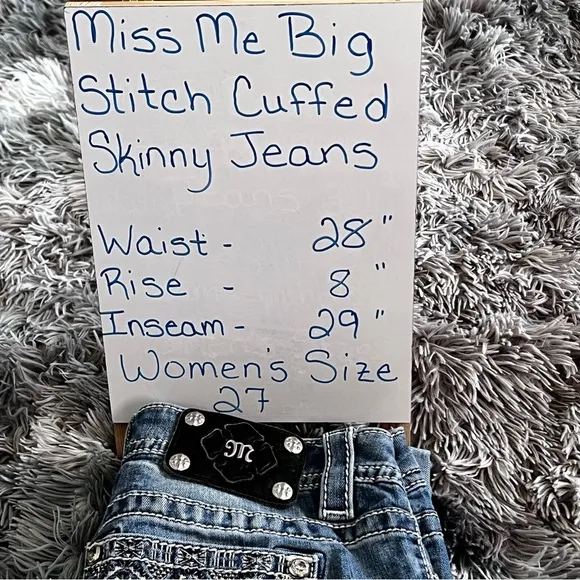 Miss Me Big
Stitch Cuffed
Skinny Jeans
Waist - 28"
Rise - 8"
Inseam - 29"
Women's Size
27